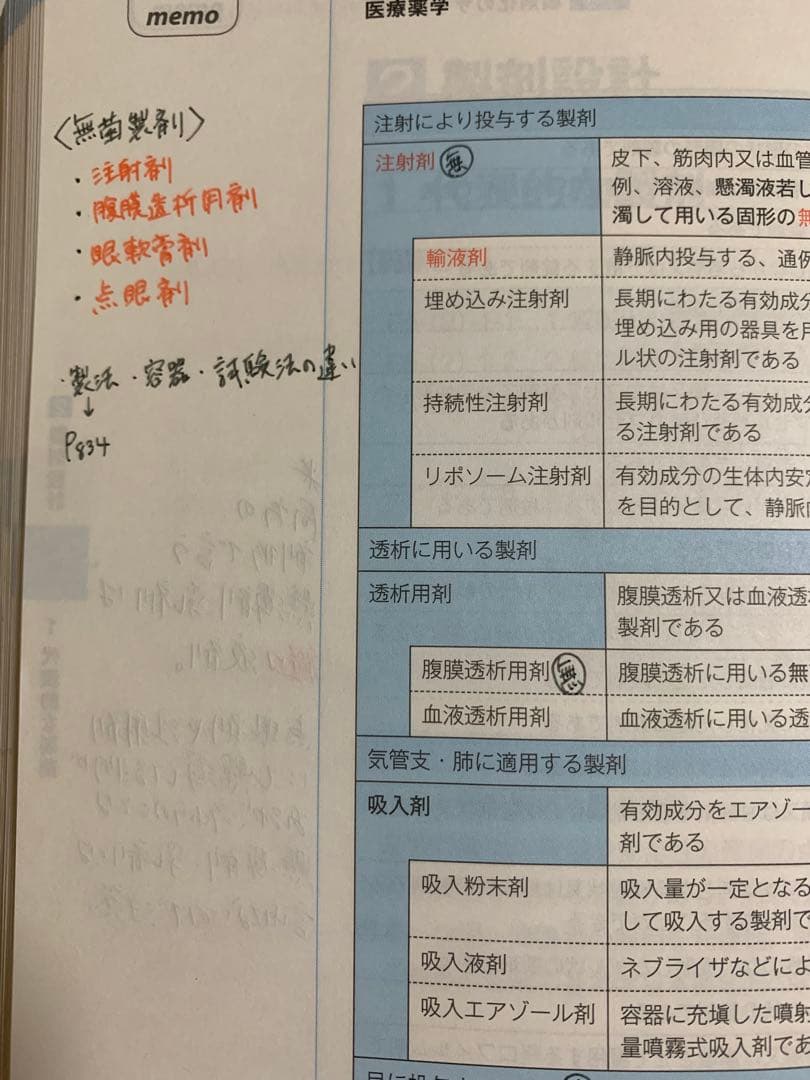 memo
医療薬学
〈無菌製剤〉
・注射剤
・腹膜透析用剤
・眼軟膏剤
・点眼剤
・製法・容器・試験法の違い
↓
P834
注射により投与する製剤
注射剤 無
皮下、筋肉内又は血管
例、溶液、懸濁液若し
濁して用いる固形の無
輸液剤
静脈内投与する、通例
埋め込み注射剤
長期にわたる有効成分
埋め込み用の器具を用
ル状の注射剤である
持続性注射剤
長期にわたる有効成分
る注射剤である
リポソーム注射剤
有効成分の生体内安定
を目的として、静脈内
透析に用いる製剤
透析用剤
腹膜透析又は血液透析
製剤である
腹膜透析用剤 無
腹膜透析に用いる無
血液透析用剤
血液透析に用いる透
気管支・肺に適用する製剤
吸入剤
有効成分をエアゾー
剤である
吸入粉末剤
吸入量が一定となる
して吸入する製剤で
吸入液剤
ネブライザなどによ
吸入エアゾール剤
容器に充塡した噴射
量噴霧式吸入剤であ